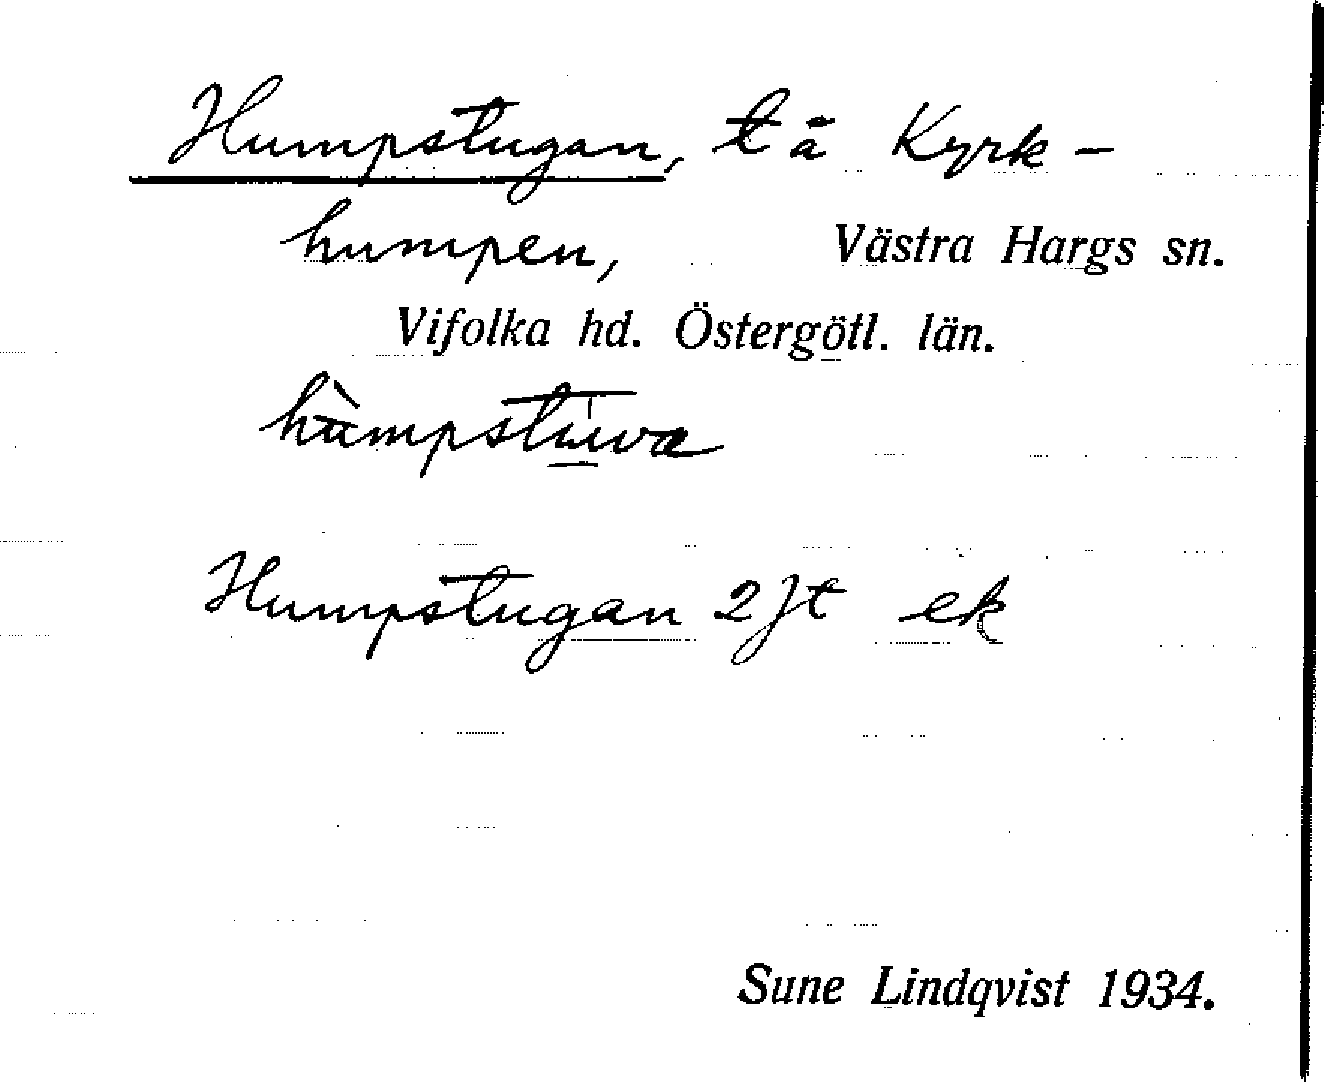 Humpstugan, t å Kyrk-
humpen, Västra Hargs sn.
Vifolka hd. Östergötl. län.
hùmpstuva
Humpstugan 2 Jt ek
Sune Lindqvist 1934.